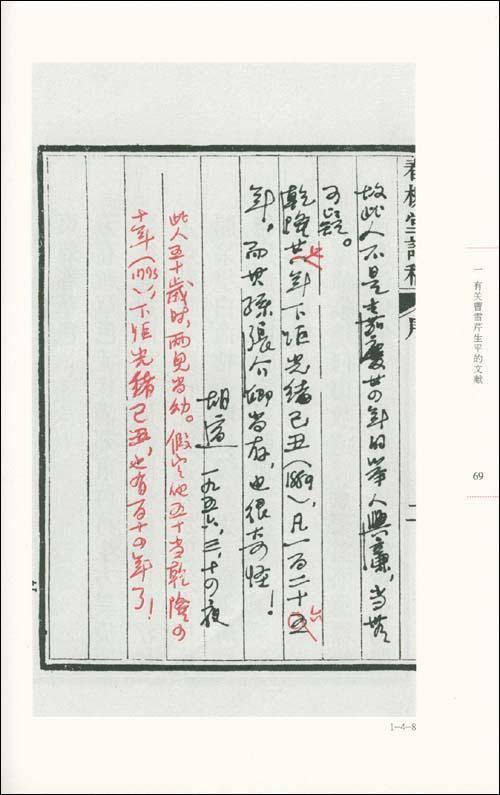 故此人不是嘉慶廿四年的舉人興廉，當無
可疑。
乾隆廿年下距光緒己丑（1889），凡一百二十五
六
年。而其孫張介卿尚存，也很奇怪！
胡適 一九五六，三，十四夜
此人五十歲時，兩兒尚幼。假定他五十當乾隆四
十年（1775），下距光緒己丑，也有百十四年了！
一 有关曹雪芹生平的文献
69
1-4-8